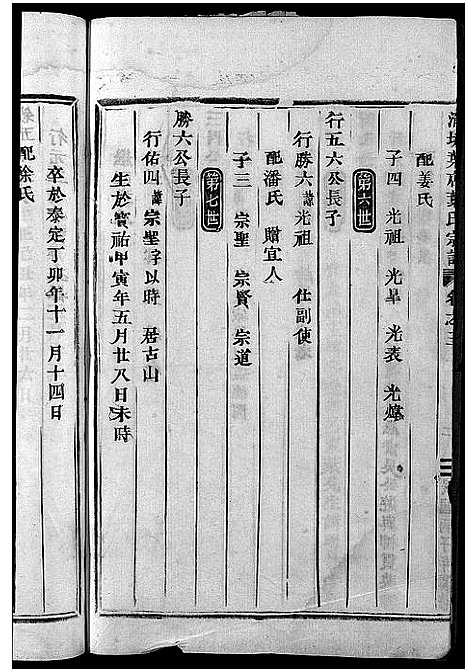 配姜氏
子四 光祖 光早 光表 光煒
第六世
行五六公長子
行勝六諱光祖 仕副使
配潘氏 贈宜人
子三 宗聖 宗賢 宗道
第七世
勝六公長子
行佑四諱宗聖字以時 居古山
生於寶祐甲寅年五月廿八日未時
卒於泰定丁卯年十一月十四日
配徐氏